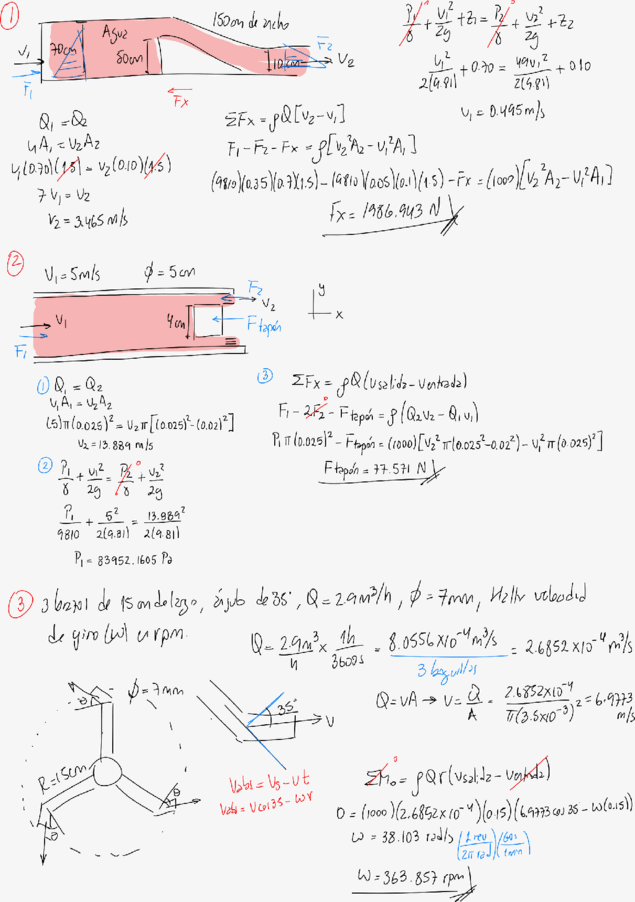 ①
V₁
F̄₁
70cm
Agua
80cm
150cm de ancho
10cm
F̄₂
V₂
F̄x
P₁/γ + V₁²/2g + Z₁ = P₂/γ⁰ + V₂²/2g + Z₂
V₁²/2(9.81) + 0.70 = 49V₁²/2(9.81) + 0.10
V₁ = 0.495 m/s
Q₁ = Q₂
V₁A₁ = V₂A₂
V₁(0.70)(1.5) = V₂(0.10)(1.5)
7V₁ = V₂
V₂ = 3.465 m/s
ΣFx = ρQ[V₂-V₁]
F₁ - F₂ - Fx = ρ[V₂²A₂ - V₁²A₁]
(9810)(0.35)(0.7)(1.5) - (9810)(0.05)(0.1)(1.5) - Fx = (1000)[V₂²A₂ - V₁²A₁]
Fx = 1986.943 N
②
V₁ = 5m/s
ϕ = 5cm
F₂
V₂
V₁
4cm
Ftapón
F₁
y
x
①
Q₁ = Q₂
V₁A₁ = V₂A₂
(5)π(0.025)² = V₂π[(0.025)² - (0.02)²]
V₂ = 13.889 m/s
②
P₁/γ + V₁²/2g = P₂/γ⁰ + V₂²/2g
P₁/9810 + 5²/2(9.81) = 13.889²/2(9.81)
P₁ = 83952.1605 Pa
③
ΣFx = ρQ(Vsalida - Ventrada)
F₁ - 2F₂⁰ - Ftapón = ρ(Q₂V₂ - Q₁V₁)
P₁π(0.025)² - Ftapón = (1000)[V₂²π(0.025² - 0.02²) - V₁²π(0.025)²]
Ftapón = 77.571 N
③ 3 brazos de 15cm de largo, ángulo de 35°, Q = 2.9m³/h, ϕ = 7mm, Hallar velocidad
de giro (ω) en rpm.
Q = 2.9m³/h × 1h/3600s = 8.0556×10⁻⁴ m³/s / 3 boquillas = 2.6852×10⁻⁴ m³/s
Q = VA → V = Q/A = 2.6852×10⁻⁴/π(3.5×10⁻³)² = 6.9773 m/s
θ
ϕ = 7mm
R = 15cm
θ
θ
35°
V
Vabs = Vs - Vt
Vabs = Vcos35 - ωr
ΣM₀⁰ = ρQr(Vsalida - Ventrada)
0 = (1000)(2.6852×10⁻⁴)(0.15)(6.9773cos35 - ω(0.15))
ω = 38.103 rad/s (1 rev/2π rad)(60s/1min)
ω = 363.857 rpm